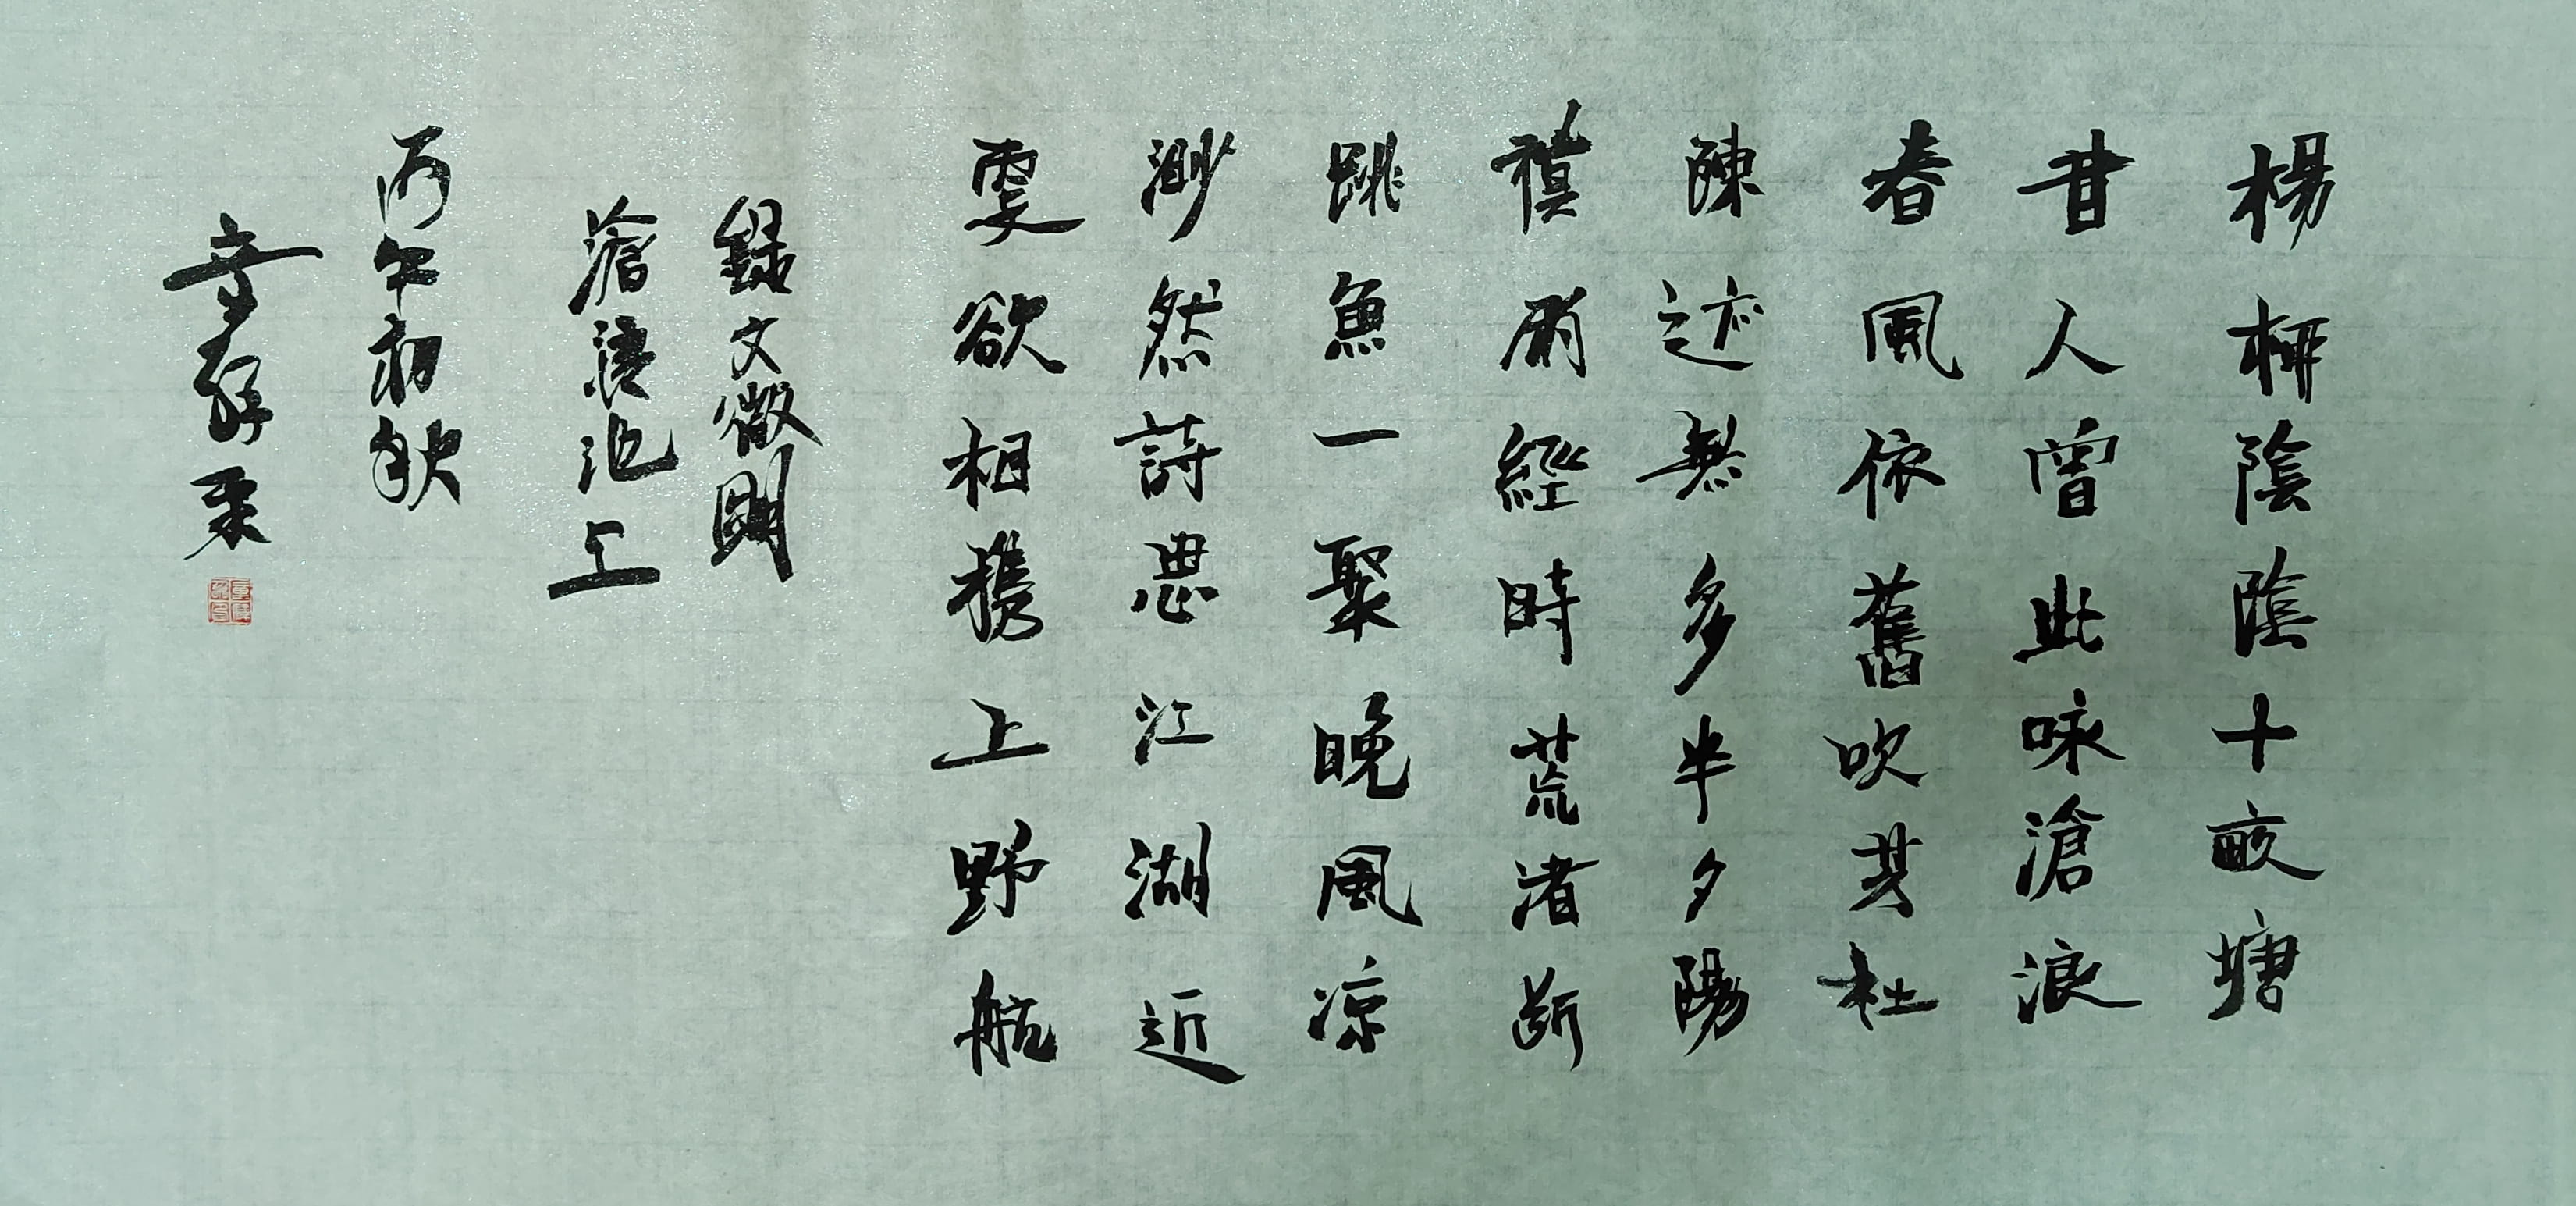 楊柳陰陰十畝塘
昔人曾此咏滄浪
春風依舊吹芳杜
陳迹無多半夕陽
積雨經時荒渚斷
跳魚一聚晚風凉
渺然詩思江湖近
更欲相携上野航
錄文徵明
滄浪池上
丙午初秋